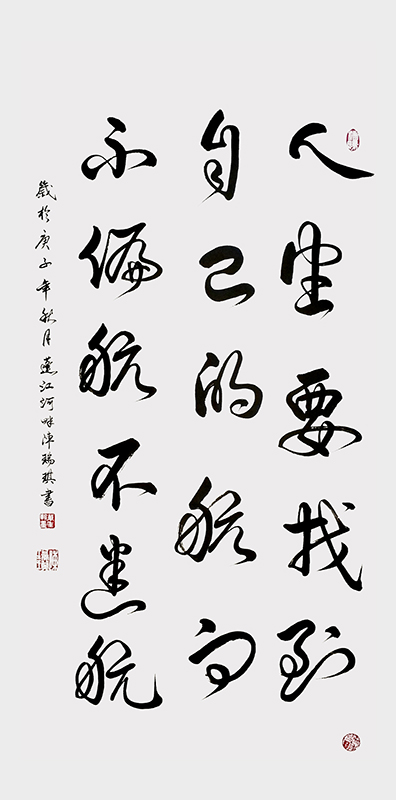 人生要找到
自己的航向
不偏航不迷航
歲於庚子年秋月蓬江河畔陳瑞琪書